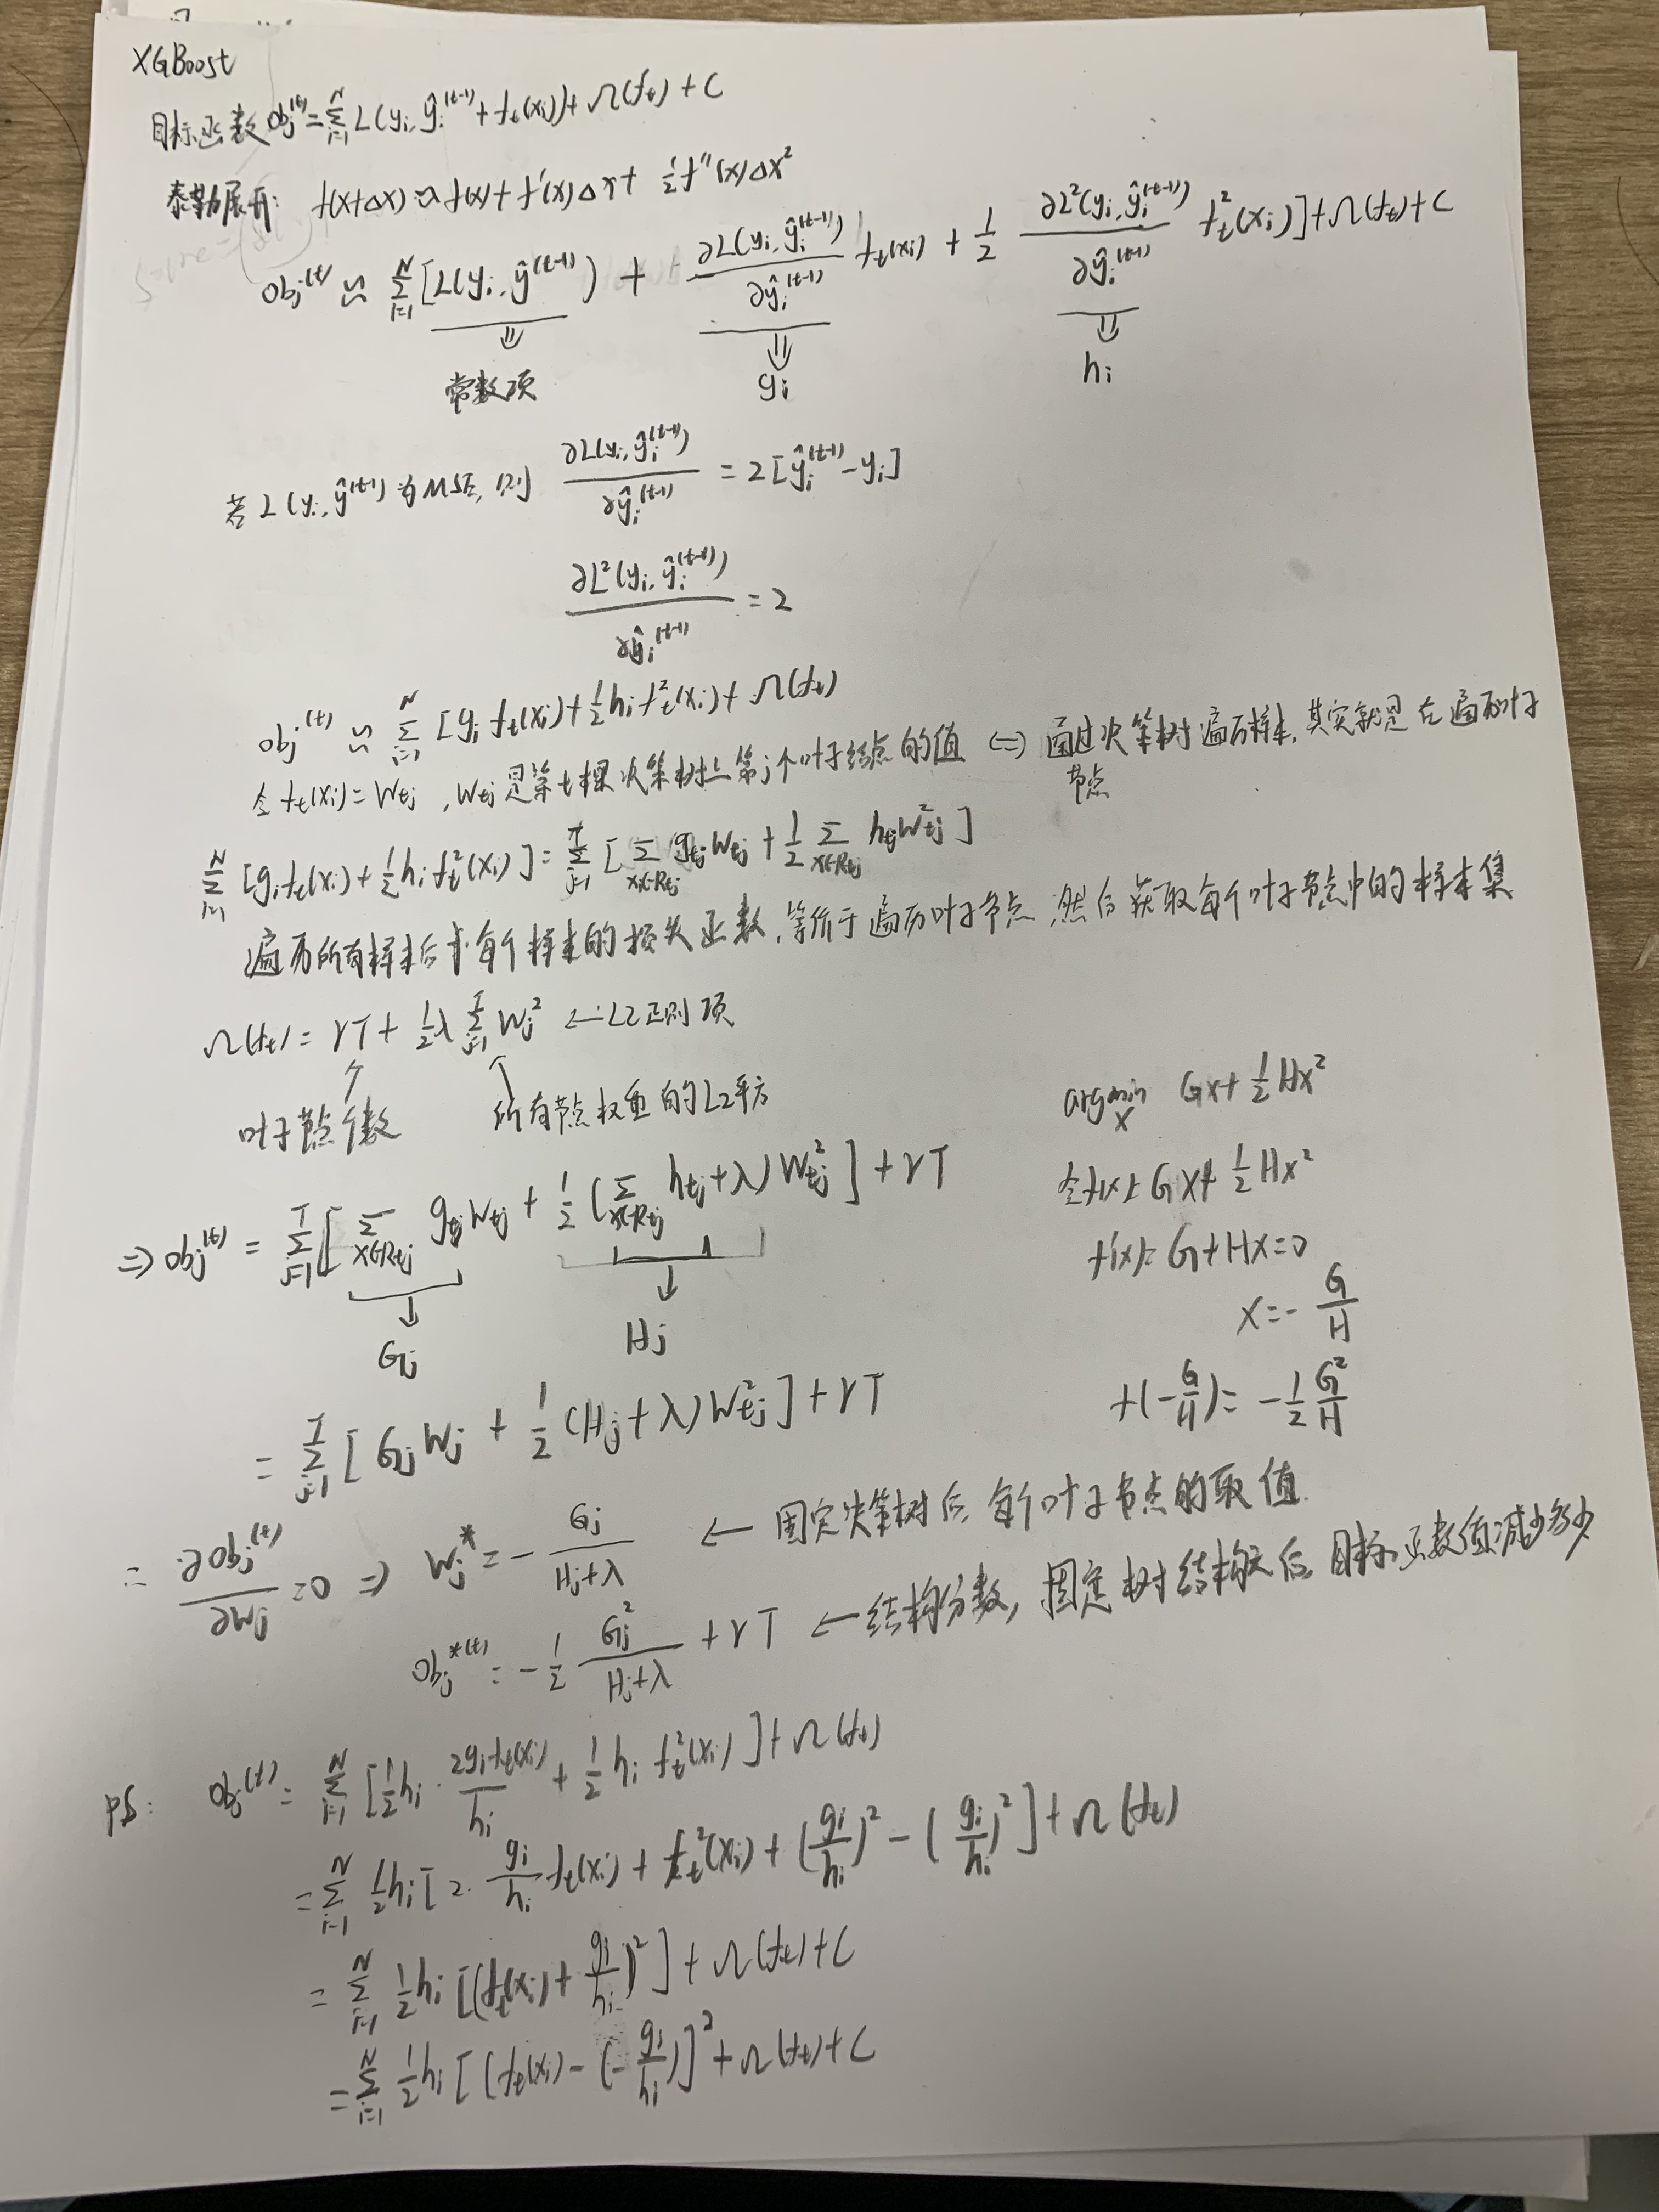 XGBoost
目标函数 Obj^(t) = Σ_{i=1}^N L(y_i, ŷ_i^(t-1) + f_t(x_i)) + Ω(f_t) + C
泰勒展开: f(x+Δx) ≈ f(x) + f'(x)Δx + 1/2 f''(x)Δx²
Obj^(t) ≈ Σ_{i=1}^N [L(y_i, ŷ^(t-1)) + ∂L(y_i, ŷ_i^(t-1))/∂ŷ_i^(t-1) f_t(x_i) + 1/2 ∂L²(y_i, ŷ_i^(t-1))/∂ŷ_i^(t-1) f_t²(x_i)] + Ω(f_t) + C
⇓ ⇓ ⇓
常数项 g_i h_i
若 L(y_i, ŷ^(t-1)) 为MSE, 则 ∂L(y_i, ŷ_i^(t-1))/∂ŷ_i^(t-1) = 2[ŷ_i^(t-1) - y_i]
∂L²(y_i, ŷ_i^(t-1))/∂ŷ_i^(t-1) = 2
Obj^(t) ≈ Σ_{i=1}^N [g_i f_t(x_i) + 1/2 h_i f_t²(x_i) + Ω(f_t)
令 f_t(x_i) = W_tj, W_tj 是第t棵决策树上第j个叶子结点的值 ⇔ 通过决策树遍历样本, 其实就是在遍历叶子
节点
Σ_{i=1}^N [g_i f_t(x_i) + 1/2 h_i f_t²(x_i)] = Σ_{j=1}^T [Σ_{x∈R_tj} g_tj W_tj + 1/2 Σ_{x∈R_tj} h_tj W_tj²]
遍历所有样本后求每个样本的损失函数, 等价于遍历叶子节点, 然后获取每个叶子节点中的样本集
Ω(f_t) = γT + 1/2 λ Σ_{j=1}^T W_j² ← L2正则项
叶子节点个数 所有节点权重的L2平方
⇒ Obj^(t) = Σ_{j=1}^T [Σ_{x∈R_tj} g_tj W_tj + 1/2 (Σ_{x∈R_tj} h_tj + λ) W_tj²] + γT
↓ ↓
G_j H_j
= Σ_{j=1}^T [G_j W_j + 1/2 (H_j + λ) W_tj²] + γT
argmin_x Gx + 1/2 Hx²
令f(x) = Gx + 1/2 Hx²
f'(x) = G + Hx = 0
x = - G/H
f(-G/H) = -1/2 G²/H
= ∂Obj^(t)/∂W_j = 0 ⇒ W_j* = - G_j/(H_j+λ) ← 固定决策树后, 每个叶子节点的取值.
Obj*^(t) = -1/2 G_j²/(H_j+λ) + γT ← 结构分数, 固定树结构后, 目标函数值减少多少
PS: Obj^(t) = Σ_{i=1}^N [1/2 h_i · 2g_i f_t(x_i)/h_i + 1/2 h_i f_t²(x_i)] + Ω(f_t)
= Σ_{i=1}^N 1/2 h_i [2· g_i/h_i f_t(x_i) + f_t²(x_i) + (g_i/h_i)² - (g_i/h_i)²] + Ω(f_t)
= Σ_{i=1}^N 1/2 h_i [(f_t(x_i) + g_i/h_i)²] + Ω(f_t) + C
= Σ_{i=1}^N 1/2 h_i [(f_t(x_i) - (-g_i/h_i)]² + Ω(f_t) + C